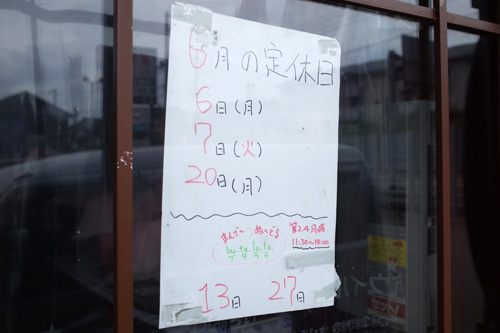 6月の定休日
6日(月)
7日(火)
20日(月)
まんでー ぬーどる
bu.ta.la.la.
ブタララ
第2.4月曜
11:30~14:00
13日 27日